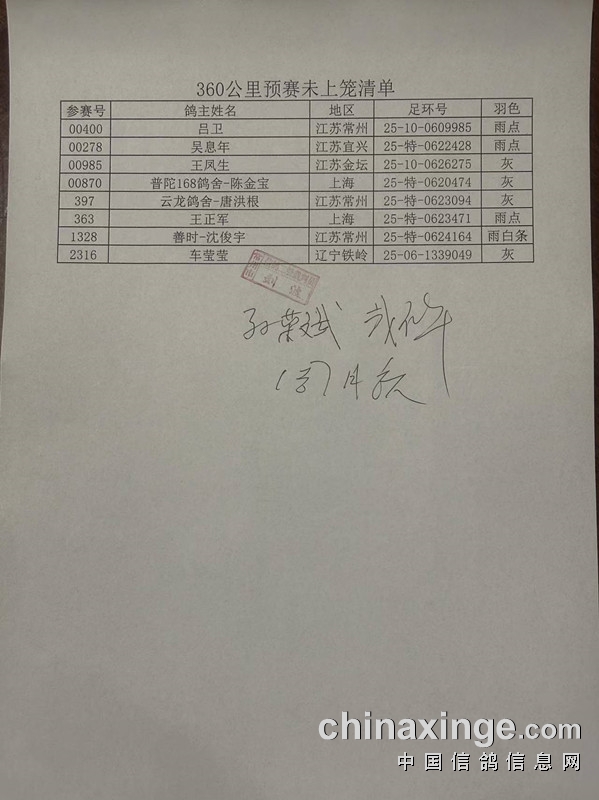 360公里预赛未上笼清单
参赛号 鸽主姓名 地区 足环号 羽色
00400 吕卫 江苏常州 25-10-0609985 雨点
00278 吴息年 江苏宜兴 25-特-0622428 雨点
00985 王凤生 江苏金坛 25-10-0626275 灰
00870 普陀168鸽舍-陈金宝 上海 25-特-0620474 灰
397 云龙鸽舍-唐洪根 江苏常州 25-特-0623094 灰
363 王正军 上海 25-特-0623471 雨点
1328 善时-沈俊宇 江苏常州 25-特-0624164 雨白条
2316 车莹莹 辽宁铁岭 25-06-1339049 灰
孙荣斌
chinaxinge.com
中国信鸽信息网